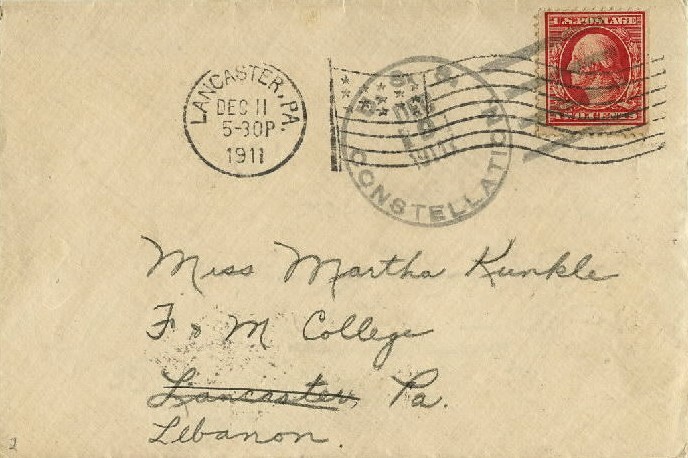 LANCASTER, PA.
DEC 11
5-30P
1911
U.S.S.
CONSTELLATION
1911
U.S. POSTAGE
Miss Martha Kunkle
F & M College
Lancaster, Pa.
Lebanon.
2